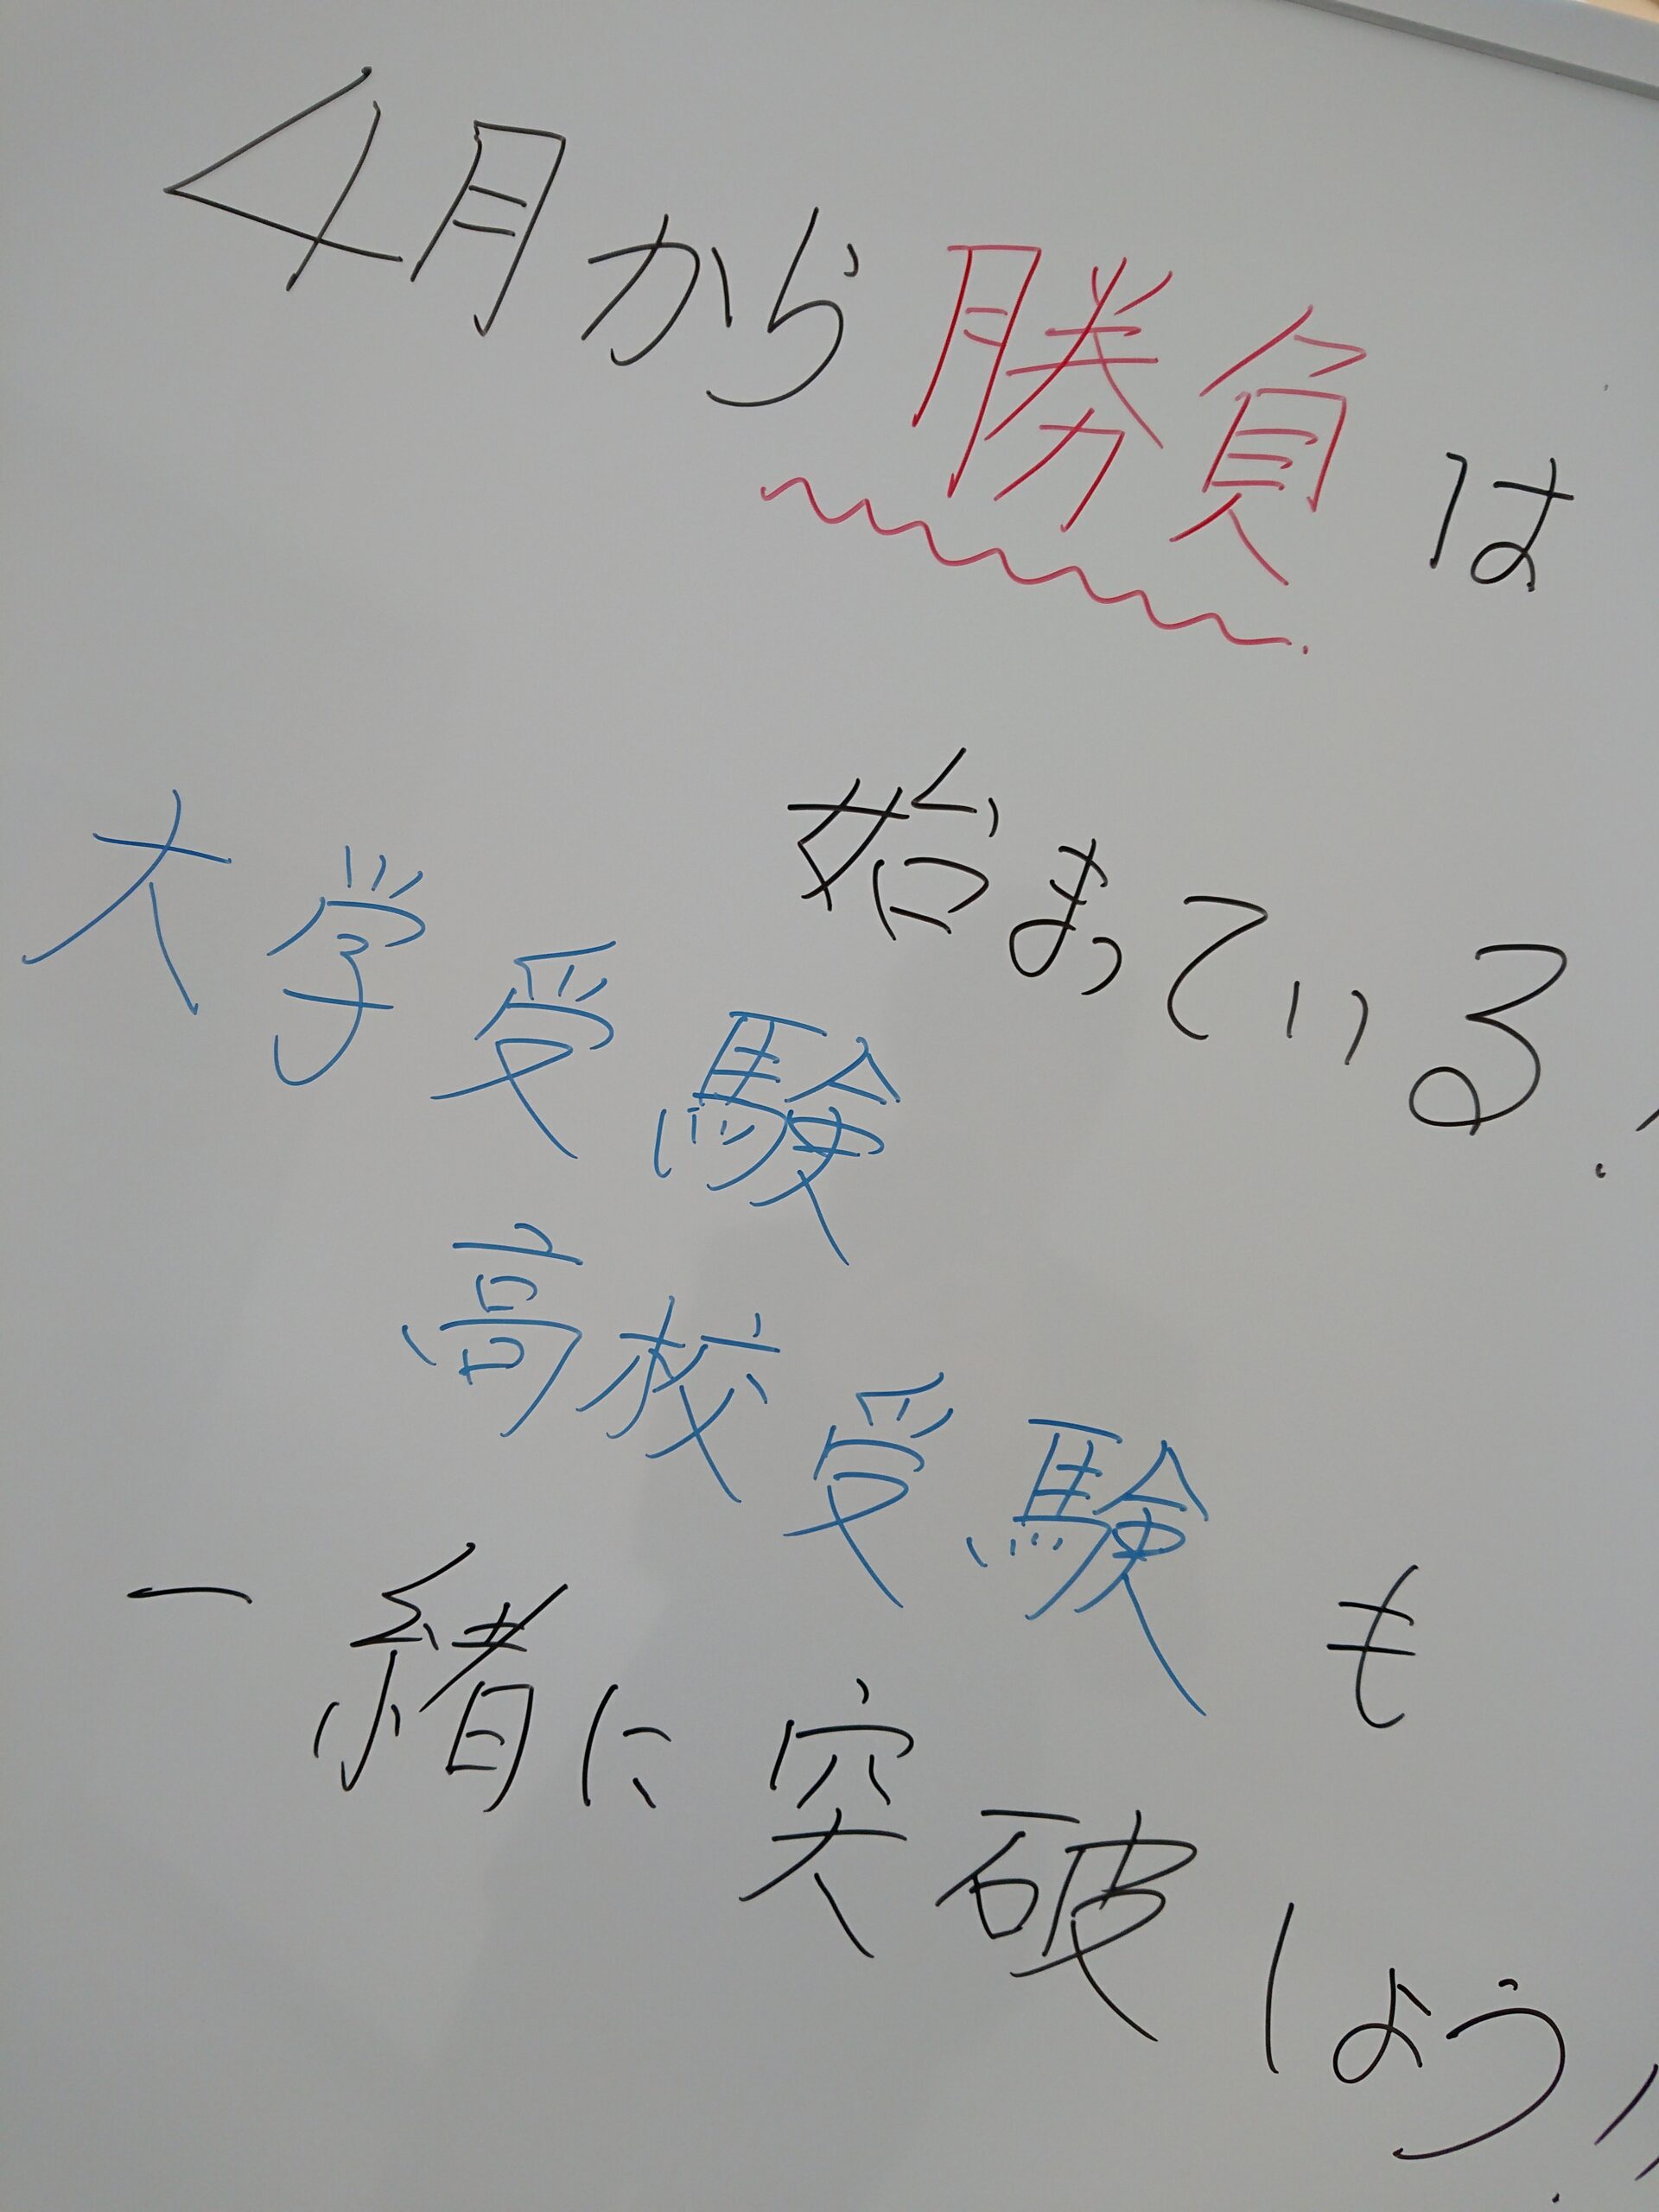 4月から勝負は
始まっている!
大学受験
高校受験も
一緒に突破しよう!!